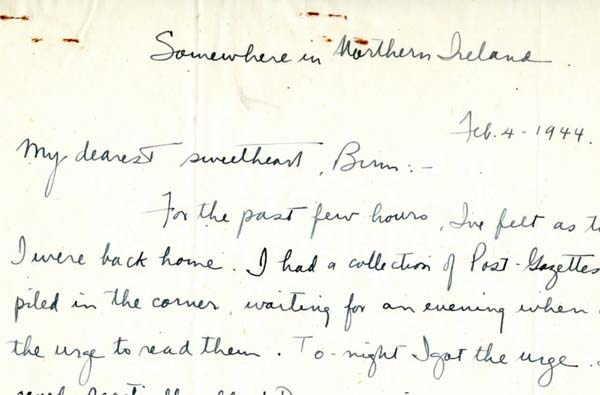 Somewhere in Northern Ireland.
Feb. 4 - 1944.
My dearest sweetheart, Binn: -
For the past few hours, I've felt as
I were back home. I had a collection of Post-Gazettes
piled in the corner, waiting for an evening when
the urge to read them. To-night I got the urge.